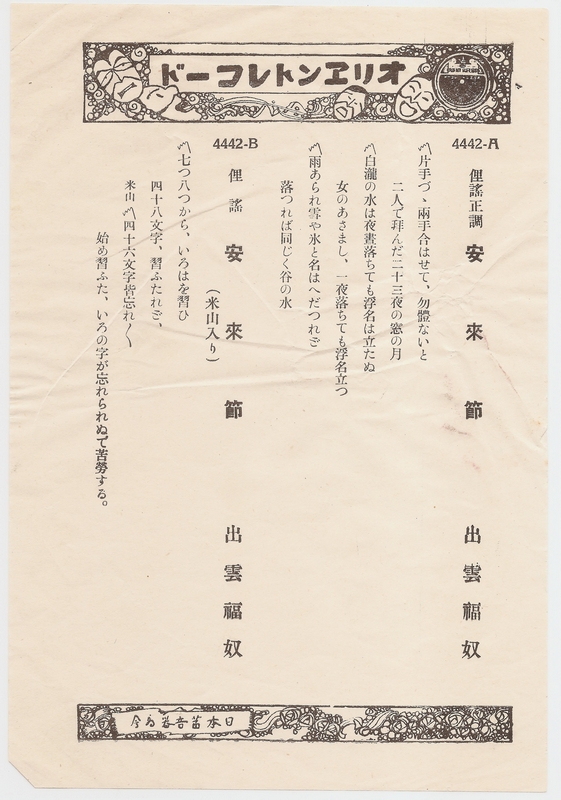 オリエントレコード
4442-A
俚謠正調 安來節 出雲福奴
〽片手づゝ兩手合はせて、勿體ないと
二人で拜んだ二十三夜の窓の月
〽白瀧の水は夜晝落ちても浮名は立たぬ
女のあさまし、一夜落ちても浮名立つ
〽雨あられ雪や氷と名はへだつれご
落つれば同じく谷の水
4442-B
俚謠 安來節 出雲福奴
(米山入り)
〽七つ八つから、いろはを習ひ
四十八文字、習ふたれご、
米山〽四十六文字皆忘れ〳〵
始め習ふた、いろの字が忘れられぬで苦勞する。
日本蓄音器商會